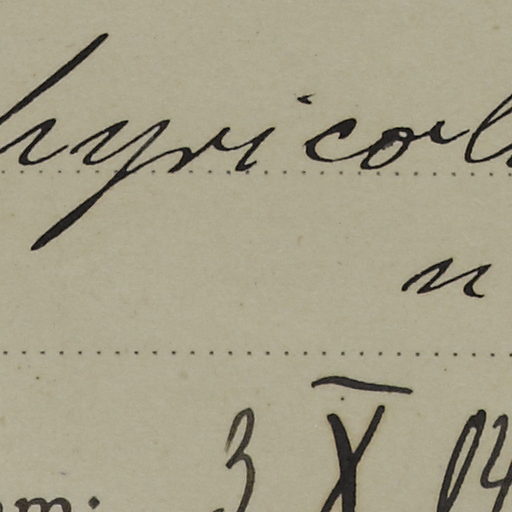 hyricol
n
am: 3 X 04